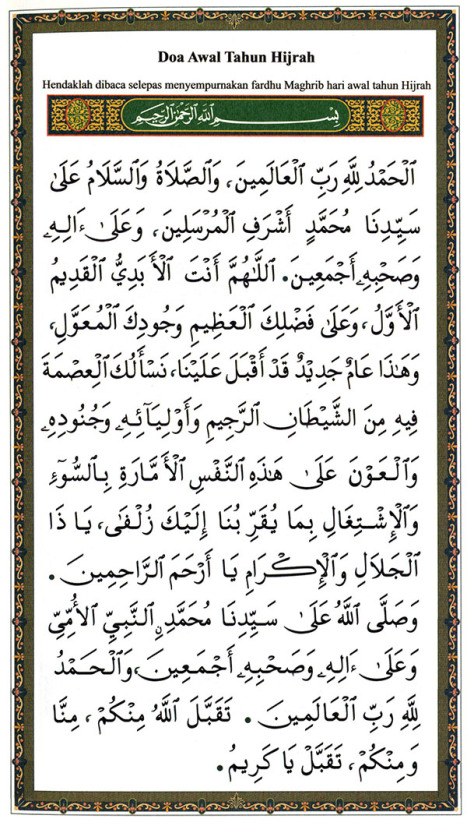 Doa Awal Tahun Hijrah
Hendaklah dibaca selepas menyempurnakan fardhu Maghrib hari awal tahun Hijrah
بِسْمِ اللَّهِ الرَّحْمَٰنِ الرَّحِيمِ
اَلْحَمْدُ لِلَّهِ رَبِّ الْعَالَمِينَ، وَالصَّلَاةُ وَالسَّلَامُ عَلَىٰ
سَيِّدِنَا مُحَمَّدٍ أَشْرَفِ الْمُرْسَلِينَ، وَعَلَىٰ ءَالِهِ
وَصَحْبِهِ أَجْمَعِينَ. اَللَّهُمَّ أَنْتَ الْأَبَدِيُّ الْقَدِيمُ
الْأَوَّلُ، وَعَلَىٰ فَضْلِكَ الْعَظِيمِ وَجُودِكَ الْمُعَوَّلِ،
وَهَٰذَا عَامٌ جَدِيدٌ قَدْ أَقْبَلَ عَلَيْنَا، نَسْأَلُكَ الْعِصْمَةَ
فِيهِ مِنَ الشَّيْطَانِ الرَّجِيمِ وَأَوْلِيَآئِهِ وَجُنُودِهِ
وَالْعَوْنَ عَلَىٰ هَٰذِهِ النَّفْسِ الْأَمَّارَةِ بِالسُّوٓءِ
وَالْإِشْتِغَالِ بِمَا يُقَرِّبُنَا إِلَيْكَ زُلْفَىٰ، يَا ذَا
الْجَلَالِ وَالْإِكْرَامِ يَا أَرْحَمَ الرَّاحِمِينَ.
وَصَلَّى اللَّهُ عَلَىٰ سَيِّدِنَا مُحَمَّدٍ النَّبِيِّ الْأُمِّيِّ
وَعَلَىٰ ءَالِهِ وَصَحْبِهِ أَجْمَعِينَ، وَالْحَمْدُ
لِلَّهِ رَبِّ الْعَالَمِينَ. تَقَبَّلَ اللَّهُ مِنْكُمْ، مِنَّا
وَمِنْكُمْ، تَقَبَّلْ يَا كَرِيمُ.